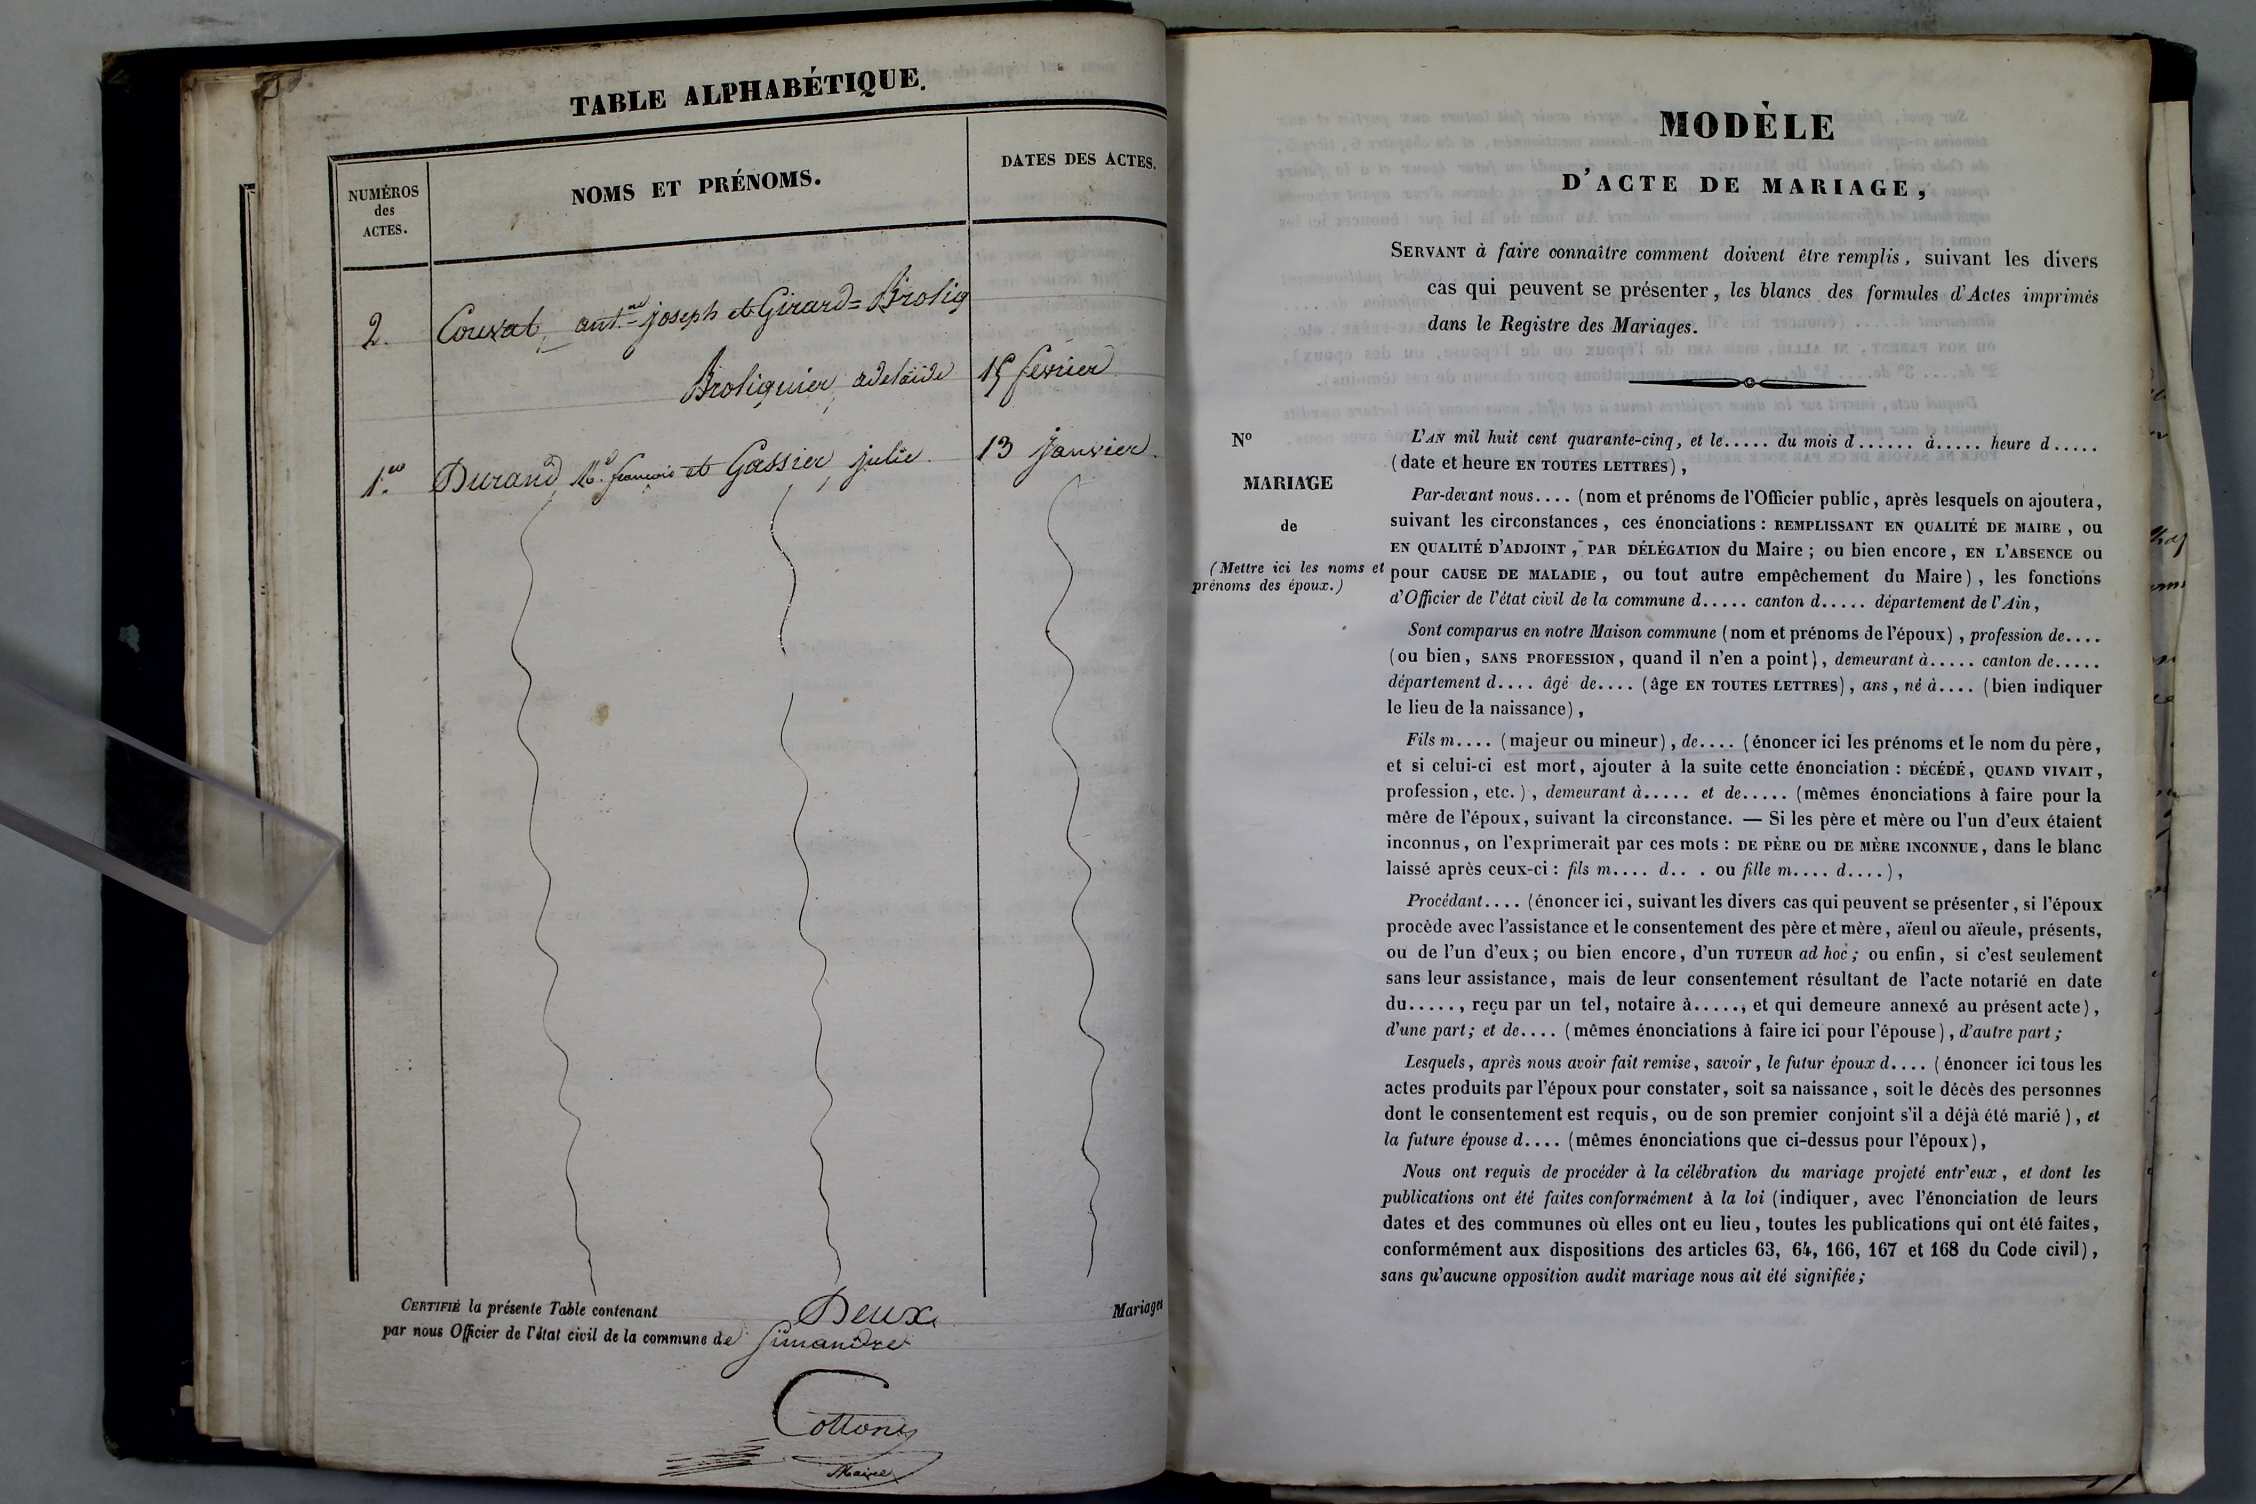 TABLE ALPHABÉTIQUE.
NUMÉROS
des
ACTES.
NOMS ET PRÉNOMS.
DATES DES ACTES.
2. Couvat, ant.ne joseph et Girard=
Broliquier, adelaïde 15 février
1.er Durand, M.e françois et Gassier, julie. 13 janvier.
CERTIFIÉ la présente Table contenant Deux Mariages
par nous Officier de l'état civil de la commune de Simandre
Cottone
Maire
MODÈLE
D'ACTE DE MARIAGE,
SERVANT à faire connaître comment doivent être remplis, suivant les divers
cas qui peuvent se présenter, les blancs des formules d'Actes imprimés
dans le Registre des Mariages.
No
MARIAGE
de
(Mettre ici les noms et
prénoms des époux.)
L'AN mil huit cent quarante-cinq, et le..... du mois d...... à..... heure d.....
(date et heure EN TOUTES LETTRES),
Par-devant nous.... (nom et prénoms de l'Officier public, après lesquels on ajoutera,
suivant les circonstances, ces énonciations : REMPLISSANT EN QUALITÉ DE MAIRE, ou
EN QUALITÉ D'ADJOINT, PAR DÉLÉGATION du Maire; ou bien encore, EN L'ABSENCE ou
pour CAUSE DE MALADIE, ou tout autre empêchement du Maire), les fonctions
d'Officier de l'état civil de la commune d..... canton d..... département de l'Ain,
Sont comparus en notre Maison commune (nom et prénoms de l'époux), profession de....
(ou bien, SANS PROFESSION, quand il n'en a point), demeurant à..... canton de.....
département d.... âgé de.... (âge EN TOUTES LETTRES), ans, né à.... (bien indiquer
le lieu de la naissance),
Fils m.... (majeur ou mineur), de.... (énoncer ici les prénoms et le nom du père,
et si celui-ci est mort, ajouter à la suite cette énonciation : DÉCÉDÉ, QUAND VIVAIT,
profession, etc.), demeurant à..... et de..... (mêmes énonciations à faire pour la
mère de l'époux, suivant la circonstance. — Si les père et mère ou l'un d'eux étaient
inconnus, on l'exprimerait par ces mots : DE PÈRE OU DE MÈRE INCONNUE, dans le blanc
laissé après ceux-ci : fils m.... d.. . ou fille m.... d....),
Procédant.... (énoncer ici, suivant les divers cas qui peuvent se présenter, si l'époux
procède avec l'assistance et le consentement des père et mère, aïeul ou aïeule, présents,
ou de l'un d'eux; ou bien encore, d'un TUTEUR ad hoc; ou enfin, si c'est seulement
sans leur assistance, mais de leur consentement résultant de l'acte notarié en date
du....., reçu par un tel, notaire à....., et qui demeure annexé au présent acte),
d'une part; et de.... (mêmes énonciations à faire ici pour l'épouse), d'autre part;
Lesquels, après nous avoir fait remise, savoir, le futur époux d.... (énoncer ici tous les
actes produits par l'époux pour constater, soit sa naissance, soit le décès des personnes
dont le consentement est requis, ou de son premier conjoint s'il a déjà été marié), et
la future épouse d.... (mêmes énonciations que ci-dessus pour l'époux),
Nous ont requis de procéder à la célébration du mariage projeté entr'eux, et dont les
publications ont été faites conformément à la loi (indiquer, avec l'énonciation de leurs
dates et des communes où elles ont eu lieu, toutes les publications qui ont été faites,
conformément aux dispositions des articles 63, 64, 166, 167 et 168 du Code civil),
sans qu'aucune opposition audit mariage nous ait été signifiée;